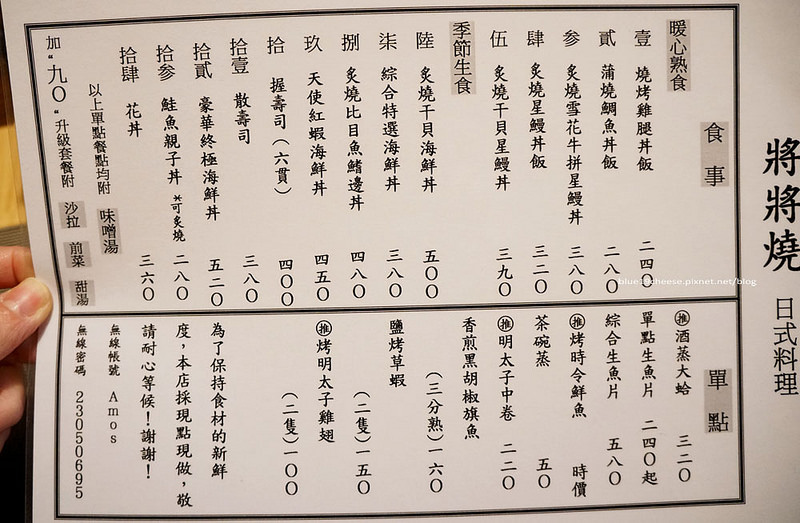 將將燒 日式料理
食事
暖心熟食
壹 燒烤雞腿丼飯 二四〇
貳 蒲燒鯛魚丼飯 二八〇
参 炙燒雪花牛拼星鰻丼 三八〇
肆 炙燒星鰻丼飯 三二〇
伍 炙燒干貝星鰻丼 三九〇
季節生食
陸 炙燒干貝海鮮丼 五〇〇
柒 綜合特選海鮮丼 三八〇
捌 炙燒比目魚鰭邊丼 四八〇
玖 天使紅蝦海鮮丼 四五〇
拾 握壽司（六貫） 四〇〇
拾壹 散壽司 三八〇
拾貳 豪華終極海鮮丼 五二〇
拾参 鮭魚親子丼 *可炙燒 二八〇
拾肆 花丼 三六〇
以上單點餐點均附 味噌湯
加“九〇“升級套餐附 沙拉 前菜 甜湯
單點
推 酒蒸大蛤 三二〇
單點生魚片 二四〇起
綜合生魚片 五八〇
推 烤時令鮮魚 時價
茶碗蒸 五〇
推 明太子中卷 二二〇
香煎黑胡椒旗魚
（三分熟）一六〇
鹽烤草蝦
（二隻）一五〇
推 烤明太子雞翅
（二隻）一〇〇
為了保持食材的新鮮
度，本店採現點現做，敬
請耐心等候！謝謝！
無線帳號 Amos
無線密碼 23050695
blue1scheese.pixnet.net/blog